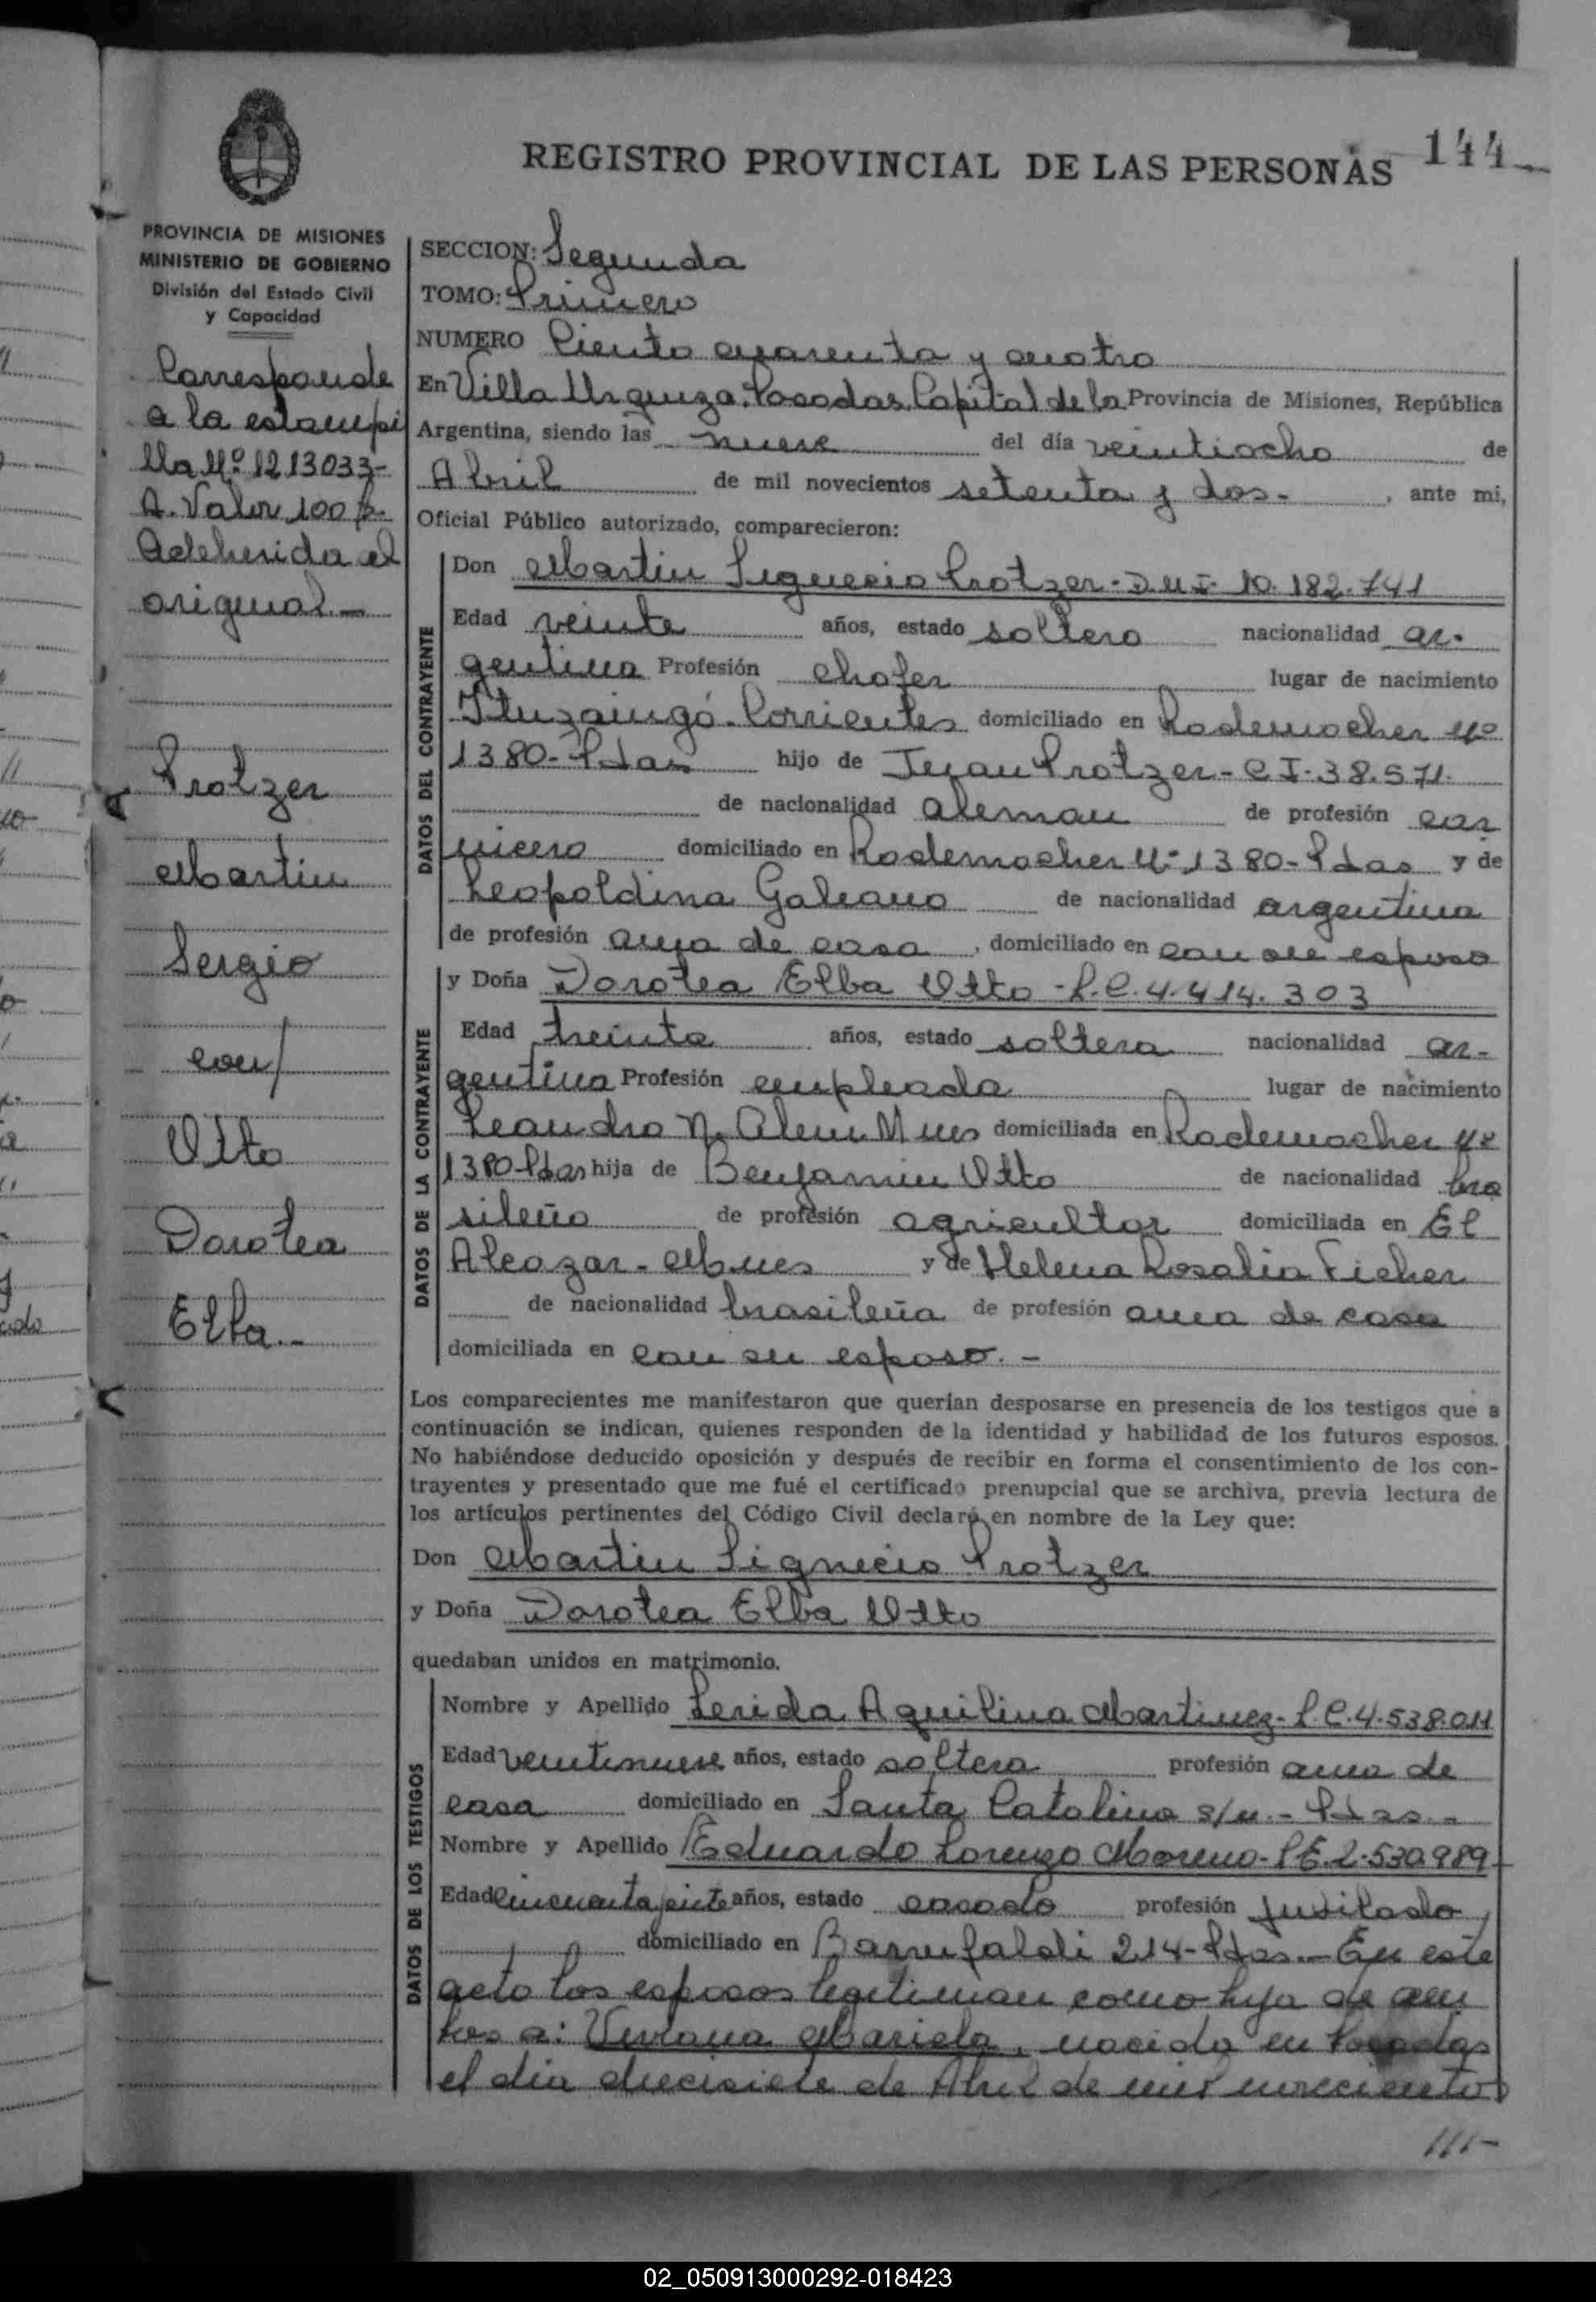 144
REGISTRO PROVINCIAL DE LAS PERSONAS
PROVINCIA DE MISIONES
MINISTERIO DE GOBIERNO
División del Estado Civil
y Capacidad
Corresponde
a la estampi
lla Nº 1213033-
A. Valor 100 $.
Adeherida al
original.-
Protzer
Martin
Sergio
con/
Otto
Dorotea
Elba.-
SECCION: Segunda
TOMO: Primero
NUMERO Ciento cuarenta y cuatro
En Villa Urquiza. Posadas, Capital de la Provincia de Misiones, República
Argentina, siendo las nueve del día veintiocho de
Abril de mil novecientos setenta y dos.- , ante mi,
Oficial Público autorizado, comparecieron:
DATOS DEL CONTRAYENTE
Don Martin Protzer - D.N.I. 10.182.741
Edad veinte años, estado soltero nacionalidad ar-
gentina Profesión chofer lugar de nacimiento
Ituzaingó - Corrientes domiciliado en Rademacher Nº
1380 - Pdas hijo de Juan Protzer - C I - 38.571.
de nacionalidad aleman de profesión car
nicero domiciliado en Rademacher Nº 1380 - Pdas y de
Leopoldina Galeano de nacionalidad argentina
de profesión ama de casa , domiciliado en con su esposo
DATOS DE LA CONTRAYENTE
y Doña Dorotea Elba Otto - L.C. 4.414.303
Edad treinta años, estado soltera nacionalidad ar-
gentina Profesión empleada lugar de nacimiento
Leandro N. Alem Mnes domiciliada en Rademacher Nº
1380 - Pdas hija de Benjamin Otto de nacionalidad bra
sileño de profesión agricultor domiciliada en El
Alcazar - Mnes y de Helena Rosalia Ficher
de nacionalidad brasileña de profesión ama de casa
domiciliada en con su esposo. -
Los comparecientes me manifestaron que querían desposarse en presencia de los testigos que a
continuación se indican, quienes responden de la identidad y habilidad de los futuros esposos.
No habiéndose deducido oposición y después de recibir en forma el consentimiento de los con-
trayentes y presentado que me fué el certificado prenupcial que se archiva, previa lectura de
los artículos pertinentes del Código Civil declaré en nombre de la Ley que:
Don Martin Protzer
y Doña Dorotea Elba Otto
quedaban unidos en matrimonio.
DATOS DE LOS TESTIGOS
Nombre y Apellido Aquilina Martinez - L.C. 4.538.011
Edad veintinueve años, estado soltera profesión ama de
casa domiciliado en Santa Catalina s/n. - Pdas -
Nombre y Apellido Eduardo Lorenzo Moreno - L E. 2.530.989 -
Edad cincuenta años, estado casado profesión jubilado
domiciliado en Barrufaldi 214 - Pdas. - En este
acto los esposos legitiman como hija de am
bos a: Viviana Mariela, nacida en Posadas
el dia diecisiete de Abril de mil novecientos
///-
02_050913000292-018423